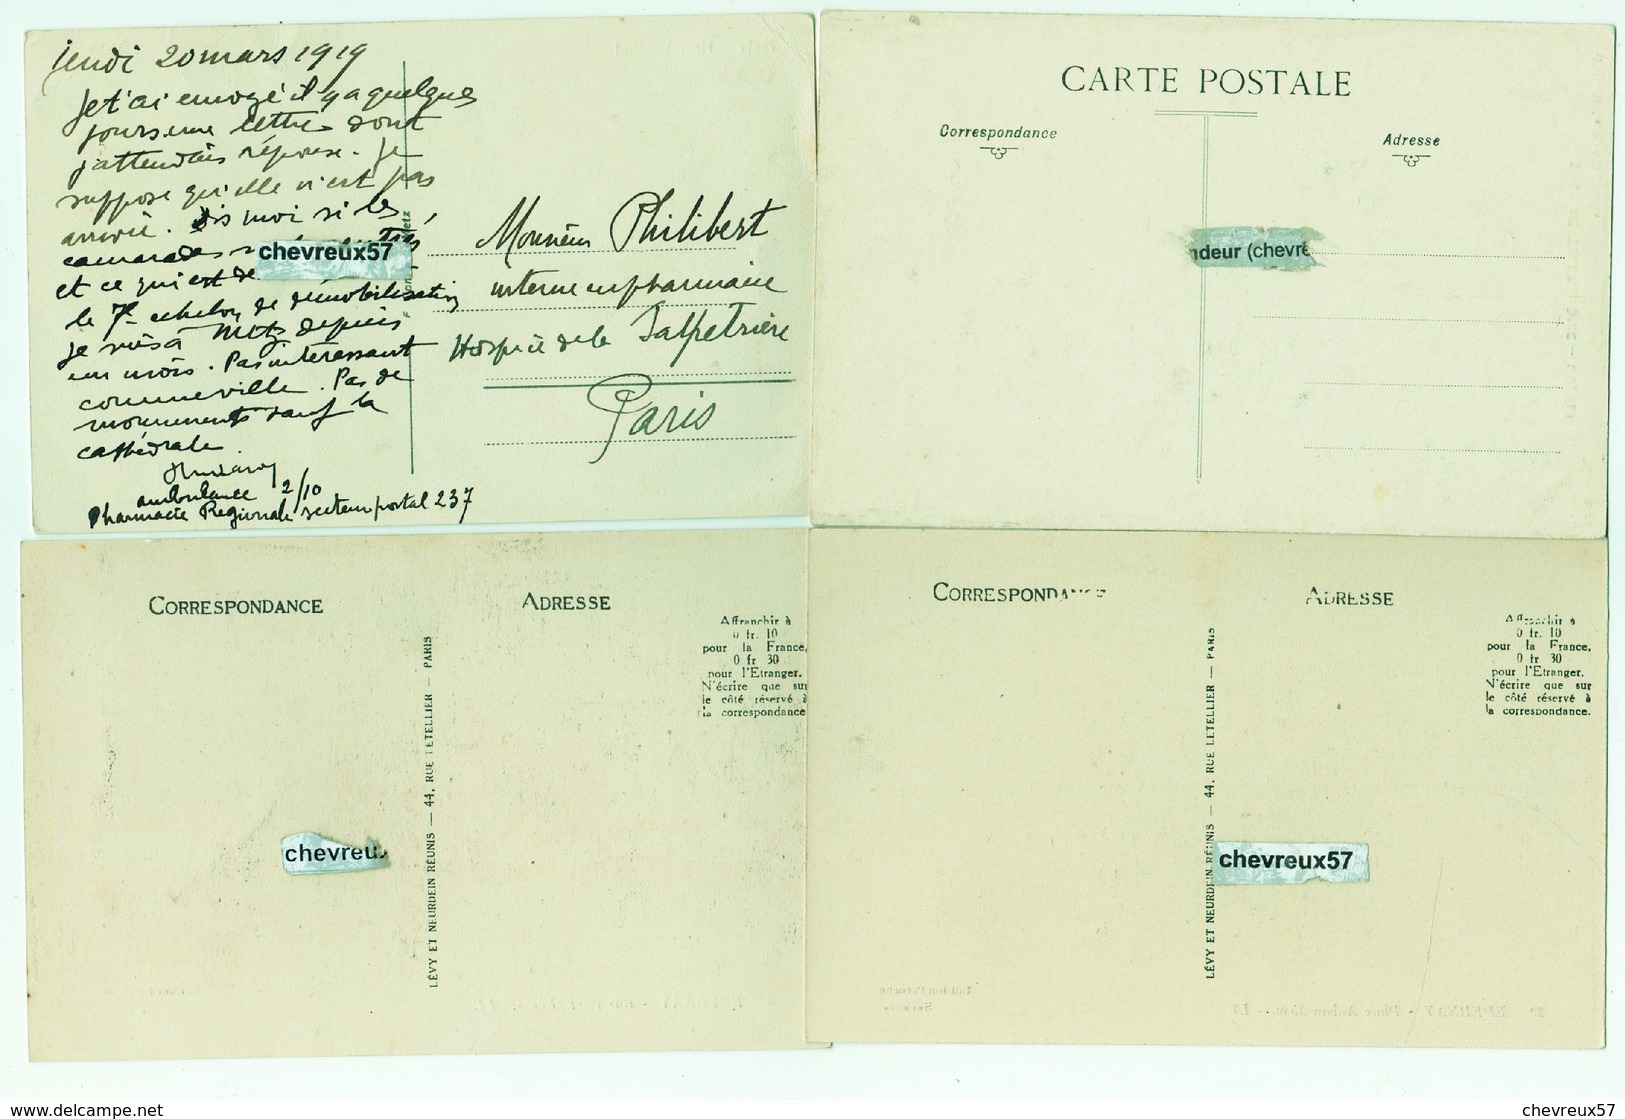 jeudi 20 mars 1919
Je t'ai envoyé il y a quelques
jours une lettre dont
j'attendais réponse. Je
suppose qu'elle n'est pas
arrivée. Dis moi si les
camarades
et ce qui est de
le 7e echelon de démobilisation
je suis à Metz depuis
un mois. Pas intéressant
comme ville. Pas de
monuments sauf la
cathédrale
ambulance 2/10
Pharmacie Régionale secteur postal 237
chevreux57
Monsieur Philibert
interne en pharmacie
Hospice de la Salpetrière
Paris
CARTE POSTALE
Correspondance
Adresse
ndeur (chevre
CORRESPONDANCE
ADRESSE
Affranchir à
0 fr. 10
pour la France,
0 fr 30
pour l'Etranger.
N'écrire que sur
le côté réservé à
la correspondance
LÉVY ET NEURDEIN RÉUNIS — 44, RUE LETELLIER — PARIS
chevreu
CORRESPONDANCE
ADRESSE
Affranchir à
0 fr. 10
pour la France,
0 fr 30
pour l'Etranger.
N'écrire que sur
le côté réservé à
la correspondance.
LÉVY ET NEURDEIN RÉUNIS — 44, RUE LETELLIER — PARIS
chevreux57
www.delcampe.net
chevreux57